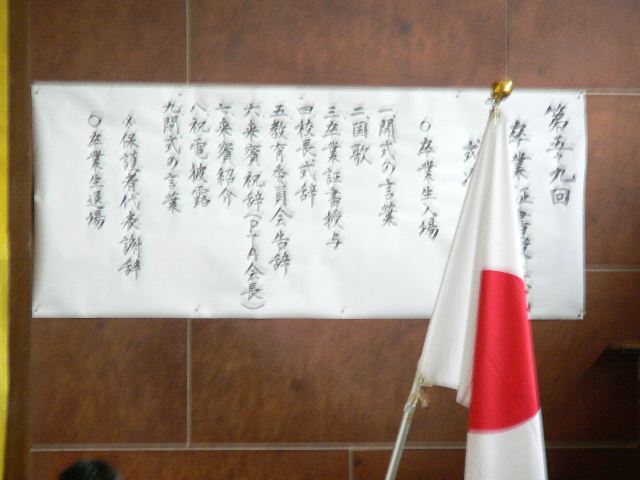 第五十九回
卒業証書授
式次
○卒業生入場
一開式の言葉
二国歌
三卒業証書授与
四校長式辞
五教育委員会告辞
六来賓祝辞(PTA会長)
七来賓紹介
八祝電披露
九閉式の言葉
※保護者代表謝辞
○卒業生退場